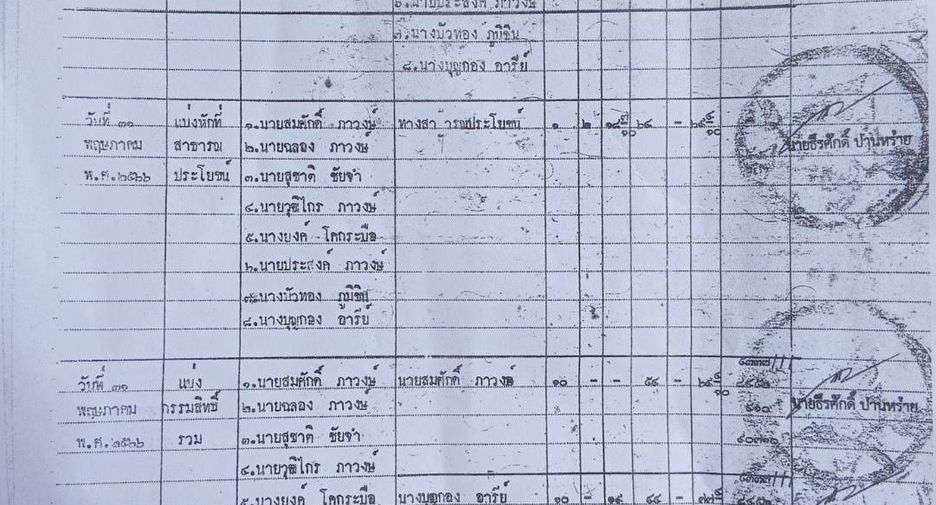 ๖.นายประสงค์ ภาวงษ์
๗.นางบัวทอง ภูมิชิน
๘.นางบุญกอง อารีย์
วันที่ ๓๑ แบ่งหักที่ ๑.นายสมศักดิ์ ภาวงษ์ ทางสาธารณประโยชน์ ๑ ๒
พฤษภาคม สาธารณ ๒.นายฉลอง ภาวงษ์ นายธีรศักดิ์ ป่านทราย
พ.ศ.๒๕๖๖ ประโยชน์ ๓.นายสุชาติ ชัยจำ
๔.นายวุฒิไกร ภาวงษ์
๕.นางยงค์ โคกระบือ
๖.นายประสงค์ ภาวงษ์
๗.นางบัวทอง ภูมิชิน
๘.นางบุญกอง อารีย์
วันที่ ๓๑ แบ่ง ๑.นายสมศักดิ์ ภาวงษ์ นายสมศักดิ์ ภาวงษ์ ๑๐ - - ๕๔ -
พฤษภาคม กรรมสิทธิ์ ๒.นายฉลอง ภาวงษ์ นายธีรศักดิ์ ป่านทราย
พ.ศ.๒๕๖๖ รวม ๓.นายสุชาติ ชัยจำ
๔.นายวุฒิไกร ภาวงษ์
๕.นางยงค์ โคกระบือ นางบุญกอง อารีย์ ๑๐ -